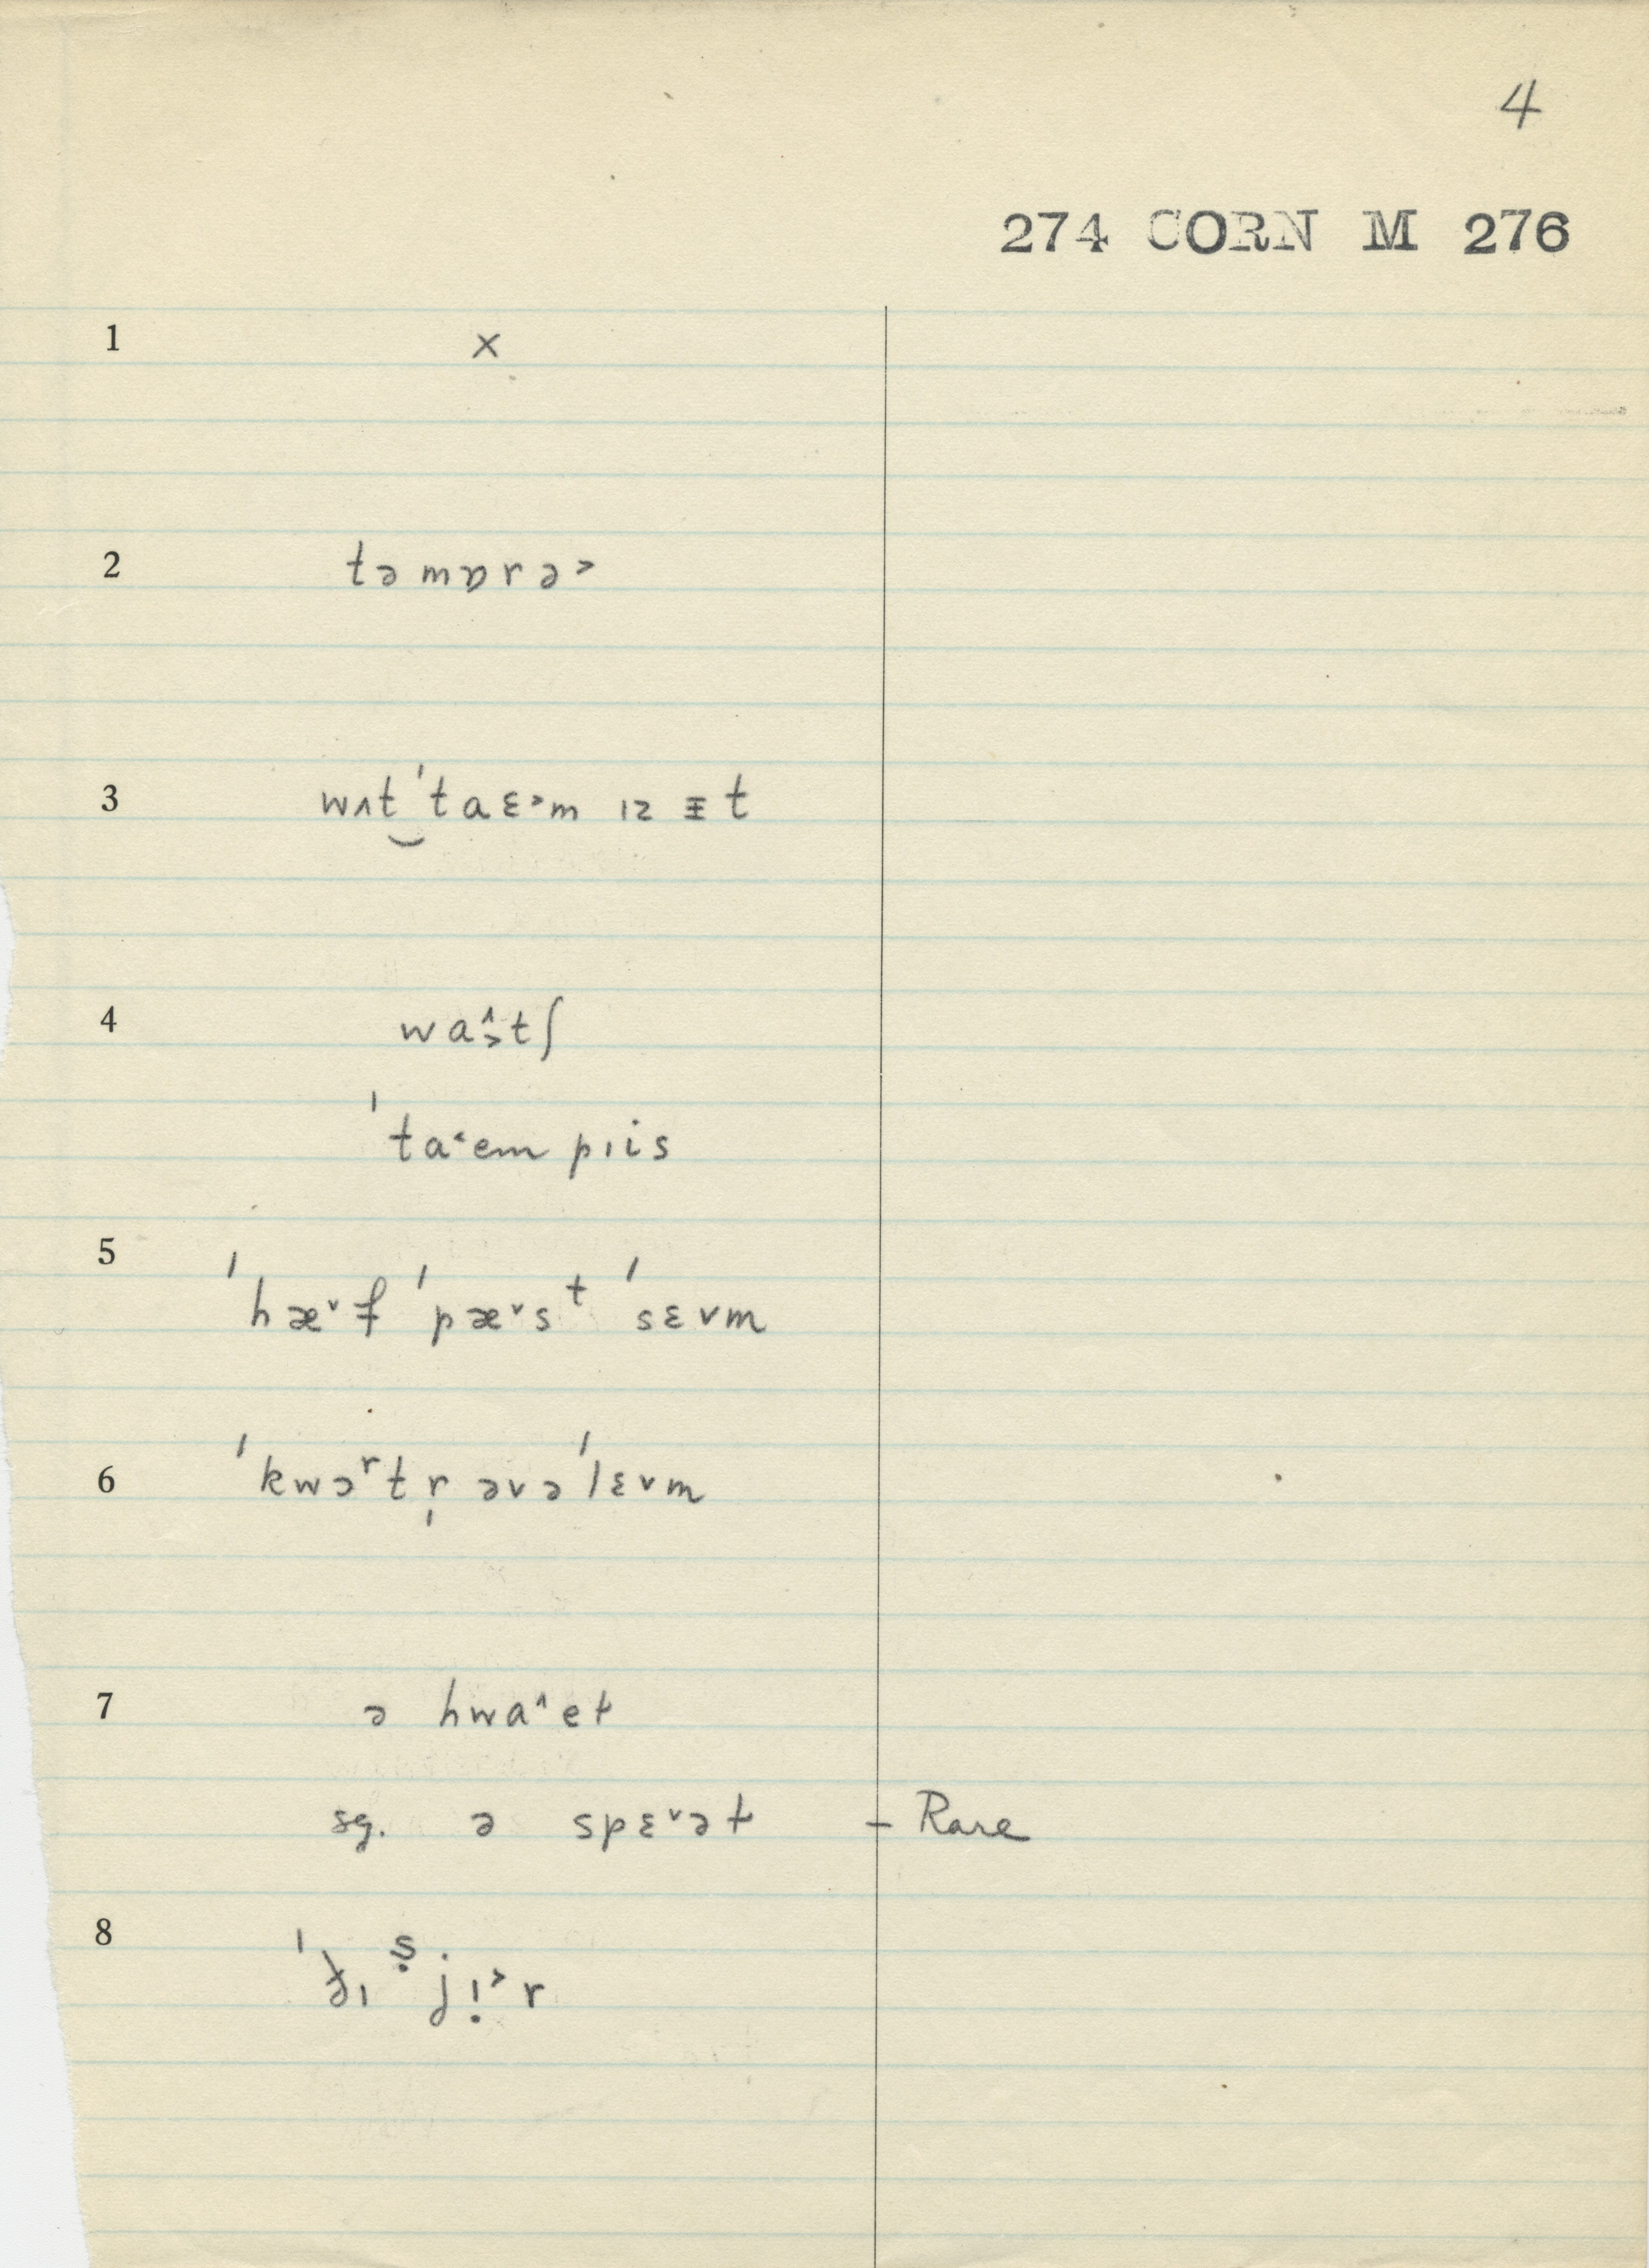 4
274 CORN M 276
1 ×
2 təmɒrə˃
3 wʌt‿ˈtaɛ˃m ɪz ᵻt
4 wa˄˃tʃ
ˈta˂em pɪis
5 ˈhæ˅f ˈpæ˅sᵗ ˈsɛvm
6 ˈkwɔʳtr̩ əvəˈlɛvm
7 ə hwa˄et
sg. ə spɛ˅ət – Rare
8 ˈðɪ ṣjɪ̣˃r